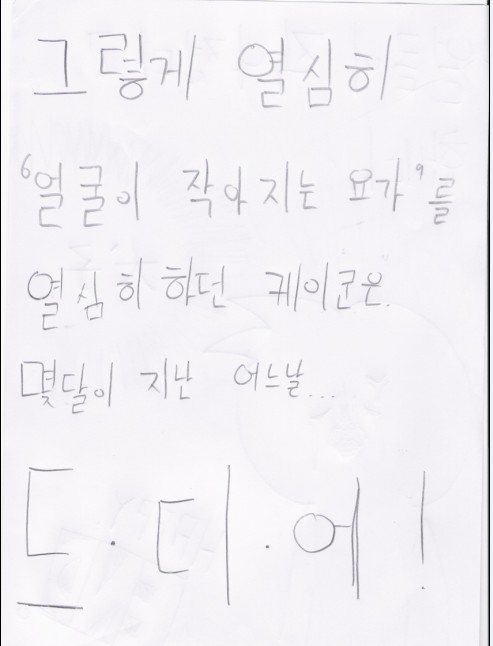 그렇게 열심히
'얼굴이 작아지는 요가'를
열심히 하던 케이쿤은
몇달이 지난 어느날...
드·디·어!